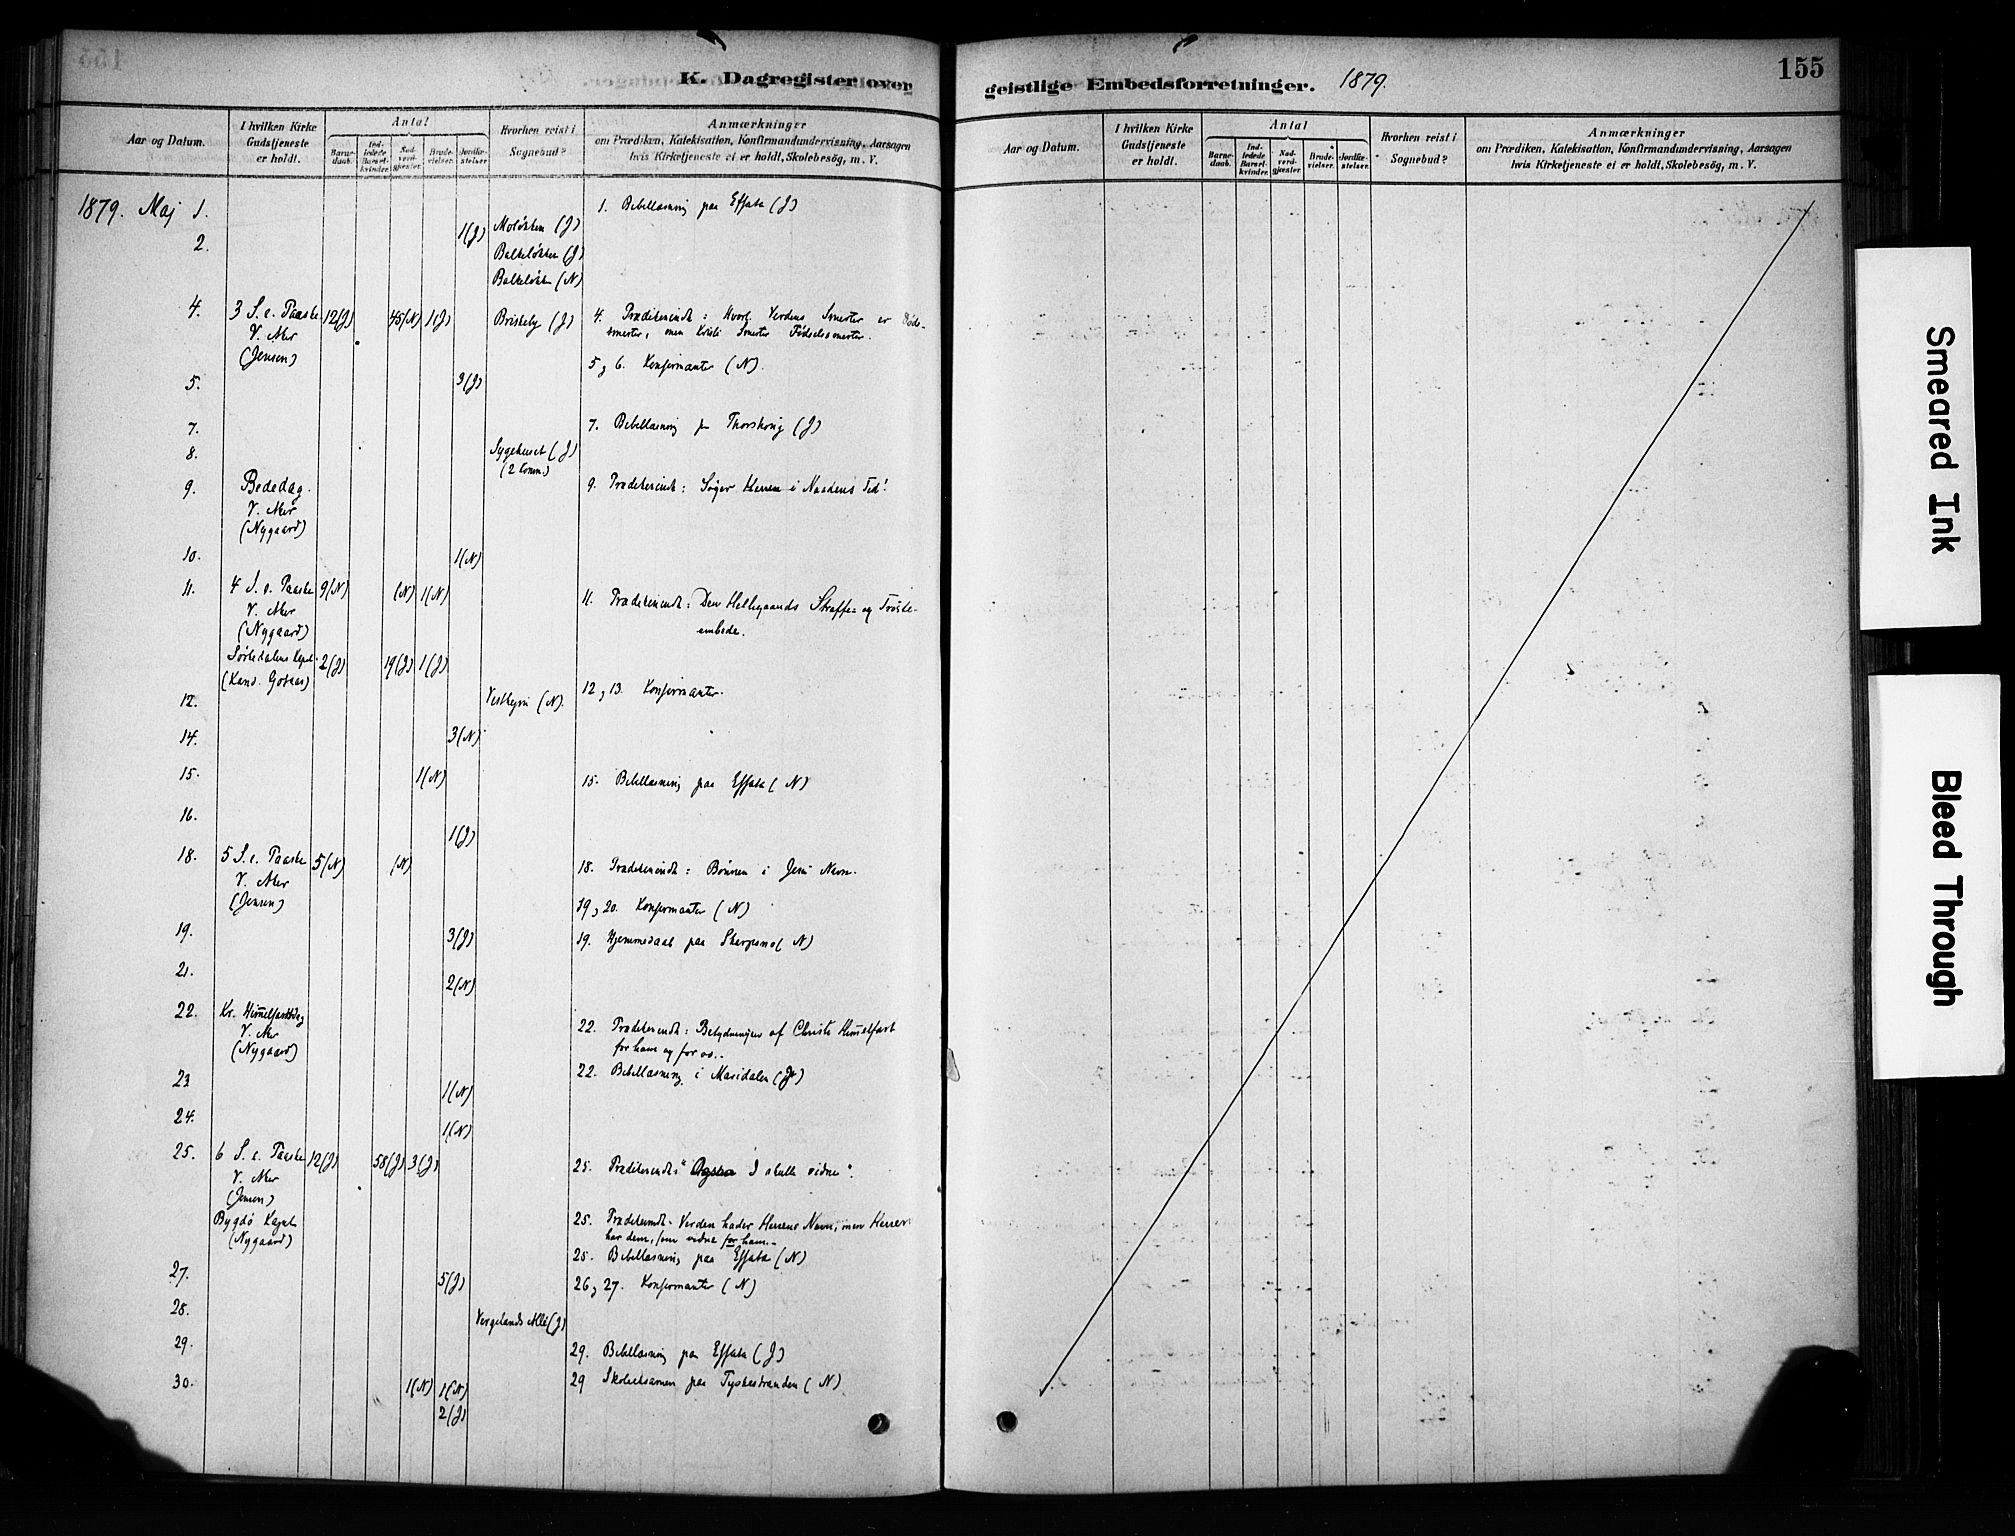 155
K. Dagregister over geistlige Embedsforretninger. 1879.
Aar og Datum.
I hvilken Kirke Gudstjeneste er holdt.
Antal
Barnedaab.
Indledede Barselkvinder.
Nadverdgjester.
Brudevielser.
Jordfæstelser.
Hvorhen reist i Sognebud?
Anmærkninger
om Prædiken, Katekisation, Konfirmandundervisning, Aarsagen
hvis Kirketjeneste ei er holdt, Skolebesög, m. V.
Aar og Datum.
I hvilken Kirke Gudstjeneste er holdt.
Antal
Barnedaab.
Indledede Barselkvinder.
Nadverdgjester.
Brudevielser.
Jordfæstelser.
Hvorhen reist i Sognebud?
Anmærkninger
om Prædiken, Katekisation, Konfirmandundervisning, Aarsagen
hvis Kirketjeneste ei er holdt, Skolebesög, m. V.
1879. Maj 1.
1. Bibellæsning paa Effata (J)
2.
1(J) Moløkken (J)
Balkeløkken (J)
Balkeløkken (N)
4. 3 S. e. Paaske 12(J) 45(N) 1(J) Briskeby (J) 4. Prædikeindh: Hvorl. Verdens Smerter er Døds-
V. Aker smerter, men Kristi Smerter Fødselssmerter.
(Jensen)
5 , 6. Konfirmanter (N).
5. 3(J)
7. 7. Bibellæsning p Thorshoug (J)
8. Sygehuset (J)
(2 Comm.)
9. Bededag. 9. Prædikeindh: Søger Herren i Naadens Tid!
V. Aker
(Nygaard)
10. 1(N)
11. 4 S. e. Paaske 9(N) (N) 1(N) 11. Prædikeindh: Den Helligaands Straffe- og Trøste-
V. Aker embede.
(Nygaard)
Sørkedalens Kapel. 2(J) 19(J) 1(J)
(Kand. Gotaas)
12. Vestheim (N). 12 , 13. Konfirmanter.
14. 3(N)
15. 1(N) 15. Bibellæsning paa Effata (N)
16.
1(J)
18. 5 S. e. Paaske 5(N) (N) 18. Prædikeindh: Bønnen i Jesu Navn.
V. Aker
(Jensen)
19 , 20. Konfirmanter (N)
19. 3(J) 19. Hjemmedaab paa Skarpsno (N)
21. 2(N)
22. Kr. Himmelfartsdag 22. Prædikeindh: Betydningen af Christi Himmelfart
V. Aker for ham og for os.
(Nygaard)
22. Bibellæsning i Maridalen (J)
23 1(N)
24. 1(N)
25. 6 S. e. Paaske 12(J) 58(J) 3(J) 25. Prædikeindh: " I skulle vidne".
V. Aker
(Jensen)
Bygdø Kapel 25. Prædikeindh: Verden hader Herrens Navn, men Herren
(Nygaard) har dem, som vidne for ham.
25. Bibellæsning paa Effata (N)
27. 5(J) 26 , 27. Konfirmanter (N)
28. Vergelands Allé (J)
29. 29. Bibellæsning paa Effata (J)
30. 1(N) 1(N) 29 Skoleexamen paa Tyskestranden (N)
2(J)
Smeared Ink
Bleed Through